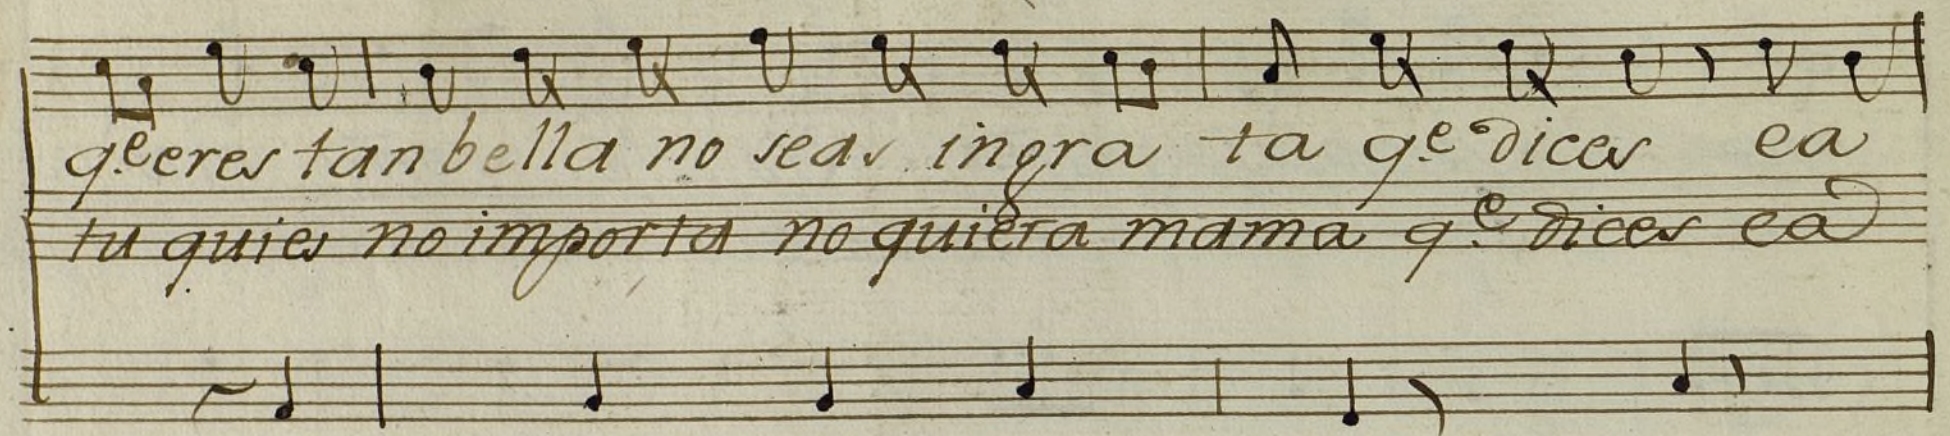 q.e eres tan bella no seas ingra ta q.e dices ea
tu quies no importa no quiera mama q.e dices ea